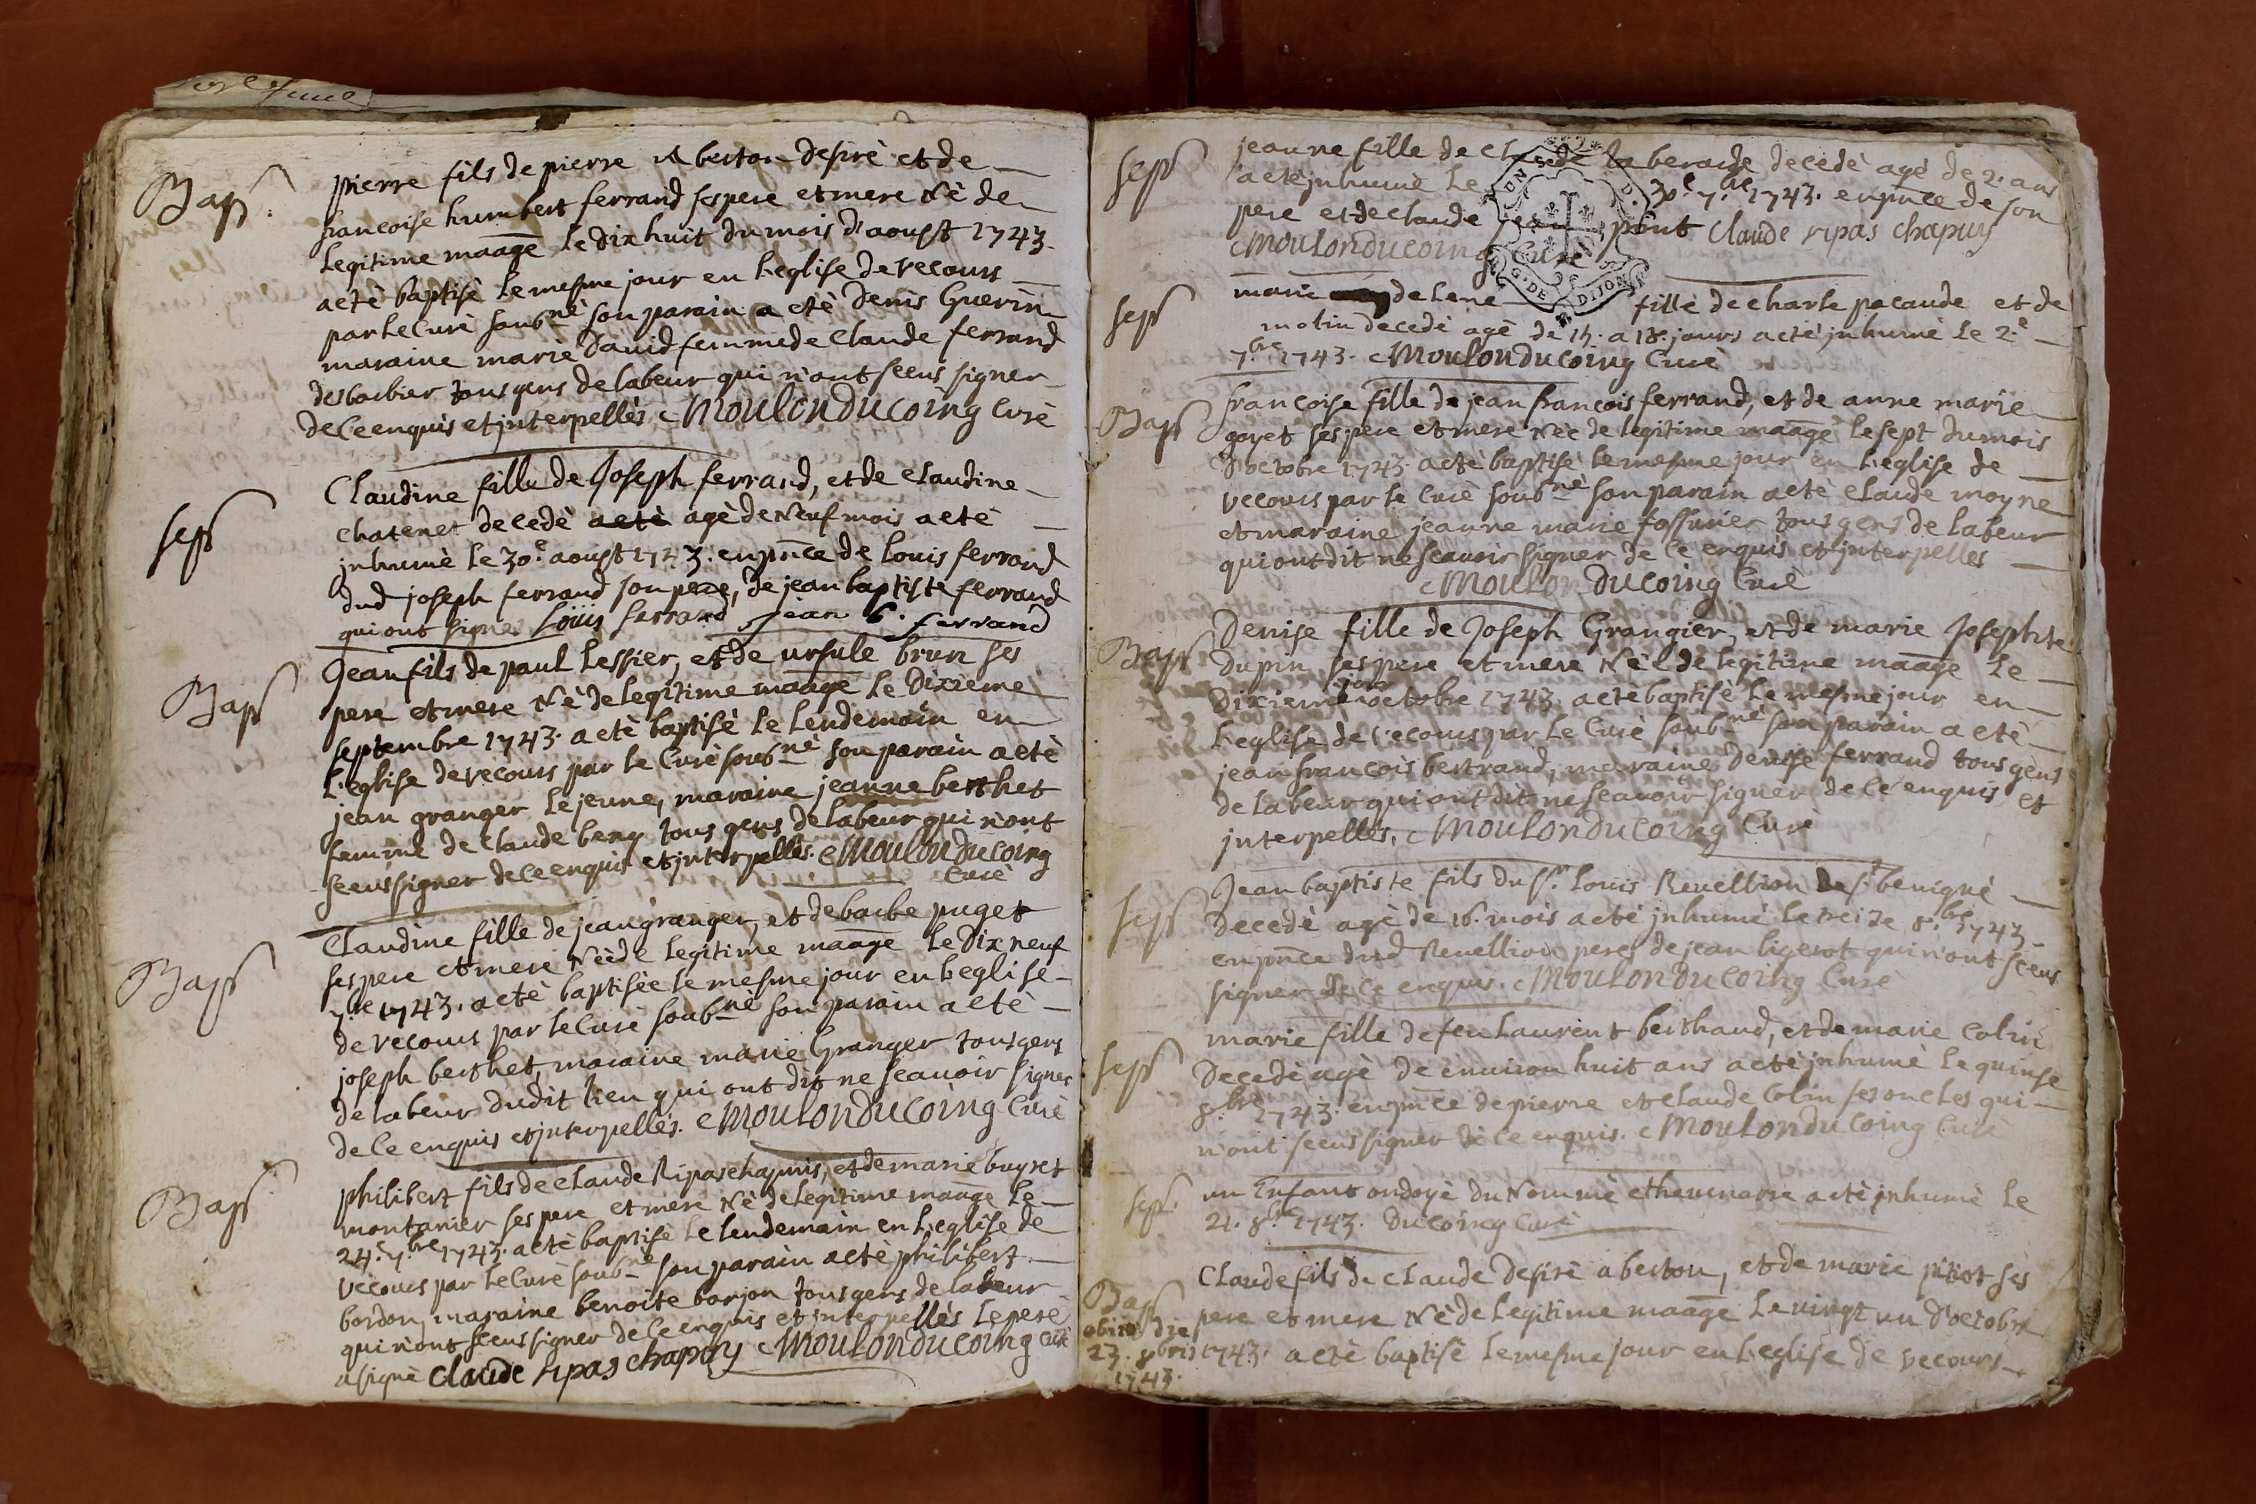 Bap.
pierre fils de pierre Aberton desiré et de
francoise humbert ferrand ses pere et mere Né de
legitime maage le dix huit du mois d'aoust 1743.
a eté baptisé le mesme jour en l'eglise de vecours
par le Curé soubné son parain a eté Denis Guerin
maraine marie David femme de Claude ferrand
desbarbier tous gens de labeur qui n'ont sceus signer
de ce enquis et interpellés. Moulonducoing Curé
sep
Claudine fille de Joseph ferrand, et de claudine
chatenet decedé a eté agé de Neuf mois a eté
jnhumé le 30e aoust 1743. en pnce de Louis ferrand
dud joseph ferrand son pere, de jean baptiste ferrand
qui ont signé Louis ferrand Jean b. ferrand
Bap
Jean fils de paul Lessier, et de ursule brun ses
pere et mere Né de legitime maage le Dixieme
septembre 1743. a eté baptisé le lendemain en
l'eglise de vecours par le Curé soubné son parain a eté
jean granger le jeune, maraine jeanne berthet
femme de claude beny tous gens de labeur qui n'ont
sceus signer de ce enquis et jnterpellés. Moulonducoing
Curé
Bap
Claudine fille de jean granger, et de barbe puget
ses pere et mere Néé de legitime maage le Dix neuf
7.bre 1743. a eté baptisée le mesme jour en l'eglise
de vecours par le Curé soubné son parain a eté
joseph berthet, maraine marie Granger tous gens
de labeur dudit lieu qui ont dit ne sçauoir signer
de ce enquis et jnterpellés. Moulonducoing Curé
Bap
philibert fils de claude Ripas chapuis, et de marie buget
montanier ses pere et mere Né de legitime maage le
24.e 7.bre 1743. a eté baptisé le lendemain en l'eglise de
vecours par le Curé soubné son parain a eté philibert
bordon, maraine benoite borjon tous gens de labeur
qui n'ont sceus signer de ce enquis et jnterpellés le pere
a signé Claude ripas chapuy Moulonducoing Curé
sep
jeanne fille de decedé agé de 2. ans
a eté jnhumé le 30e 7.bre 1743. en pnce de son
pere et de claude pont Claude ripas chapuy
Moulonducoing Curé
UN
D.
G. DE DIJON
sep
marie delene fille de charle pacaude et de
molin decedé agé de 15. a 18. jours a eté jnhumé le 2.e
7.bre 1743. Moulonducoing Curé
Bap
francoise fille de jean francois ferrand, et de anne marie
goyet ses pere et mere Néé de legitime maage le sept du mois
d'octobre 1743. a eté baptisé le mesme jour en l'eglise de
vecours par le Curé soubné son parain a eté claude moyne
et maraine jeanne marie tous gens de labeur
qui ont dit ne sceauoir signer de ce enquis et jnterpelles
Moulonducoing Curé
Bap
Denise fille de Joseph Grangier, et de marie Josephte
dupin ses pere et mere Néé de legitime maage le
Dixieme jour octobre 1743. a eté baptisé le mesme jour en
l'eglise de vecours par le Curé soubné son parain a eté
jean francois bertrand, maraine Denise ferrand tous gens
de labeur qui ont dit ne sceauoir signer de ce enquis et
jnterpellés. Moulonducoing Curé
sep
Jean baptiste fils du sr. Louis Reuellion de st. benigne
Decedé agé de 16. mois a eté jnhumé le treize 8.bre 1743
en pnce dud Reuellion pere, de jean ligerot qui n'ont sceus
signer de ce enquis. Moulonducoing Curé
sep
marie fille de feu Laurent berthaud, et de marie Colin
Decedé agé de enuiron huit ans a eté jnhumé le quinse
8.bre 1743. en pnce de pierre et claude Colin ses oncles qui
n'ont sceus signer de ce enquis. Moulonducoing Curé
sep.
un Enfant ondoyé du Nommé a eté jnhumé le
21. 8.bre 1743. ducoing Curé
Bap
obiit die
23. 8bris
1743.
Claude fils de claude Desiré aberton, et de marie pitiot ses
pere et mere Né de legitime maage le uingt un d'octobre
1743. a eté baptisé le mesme jour en l'eglise de vecours